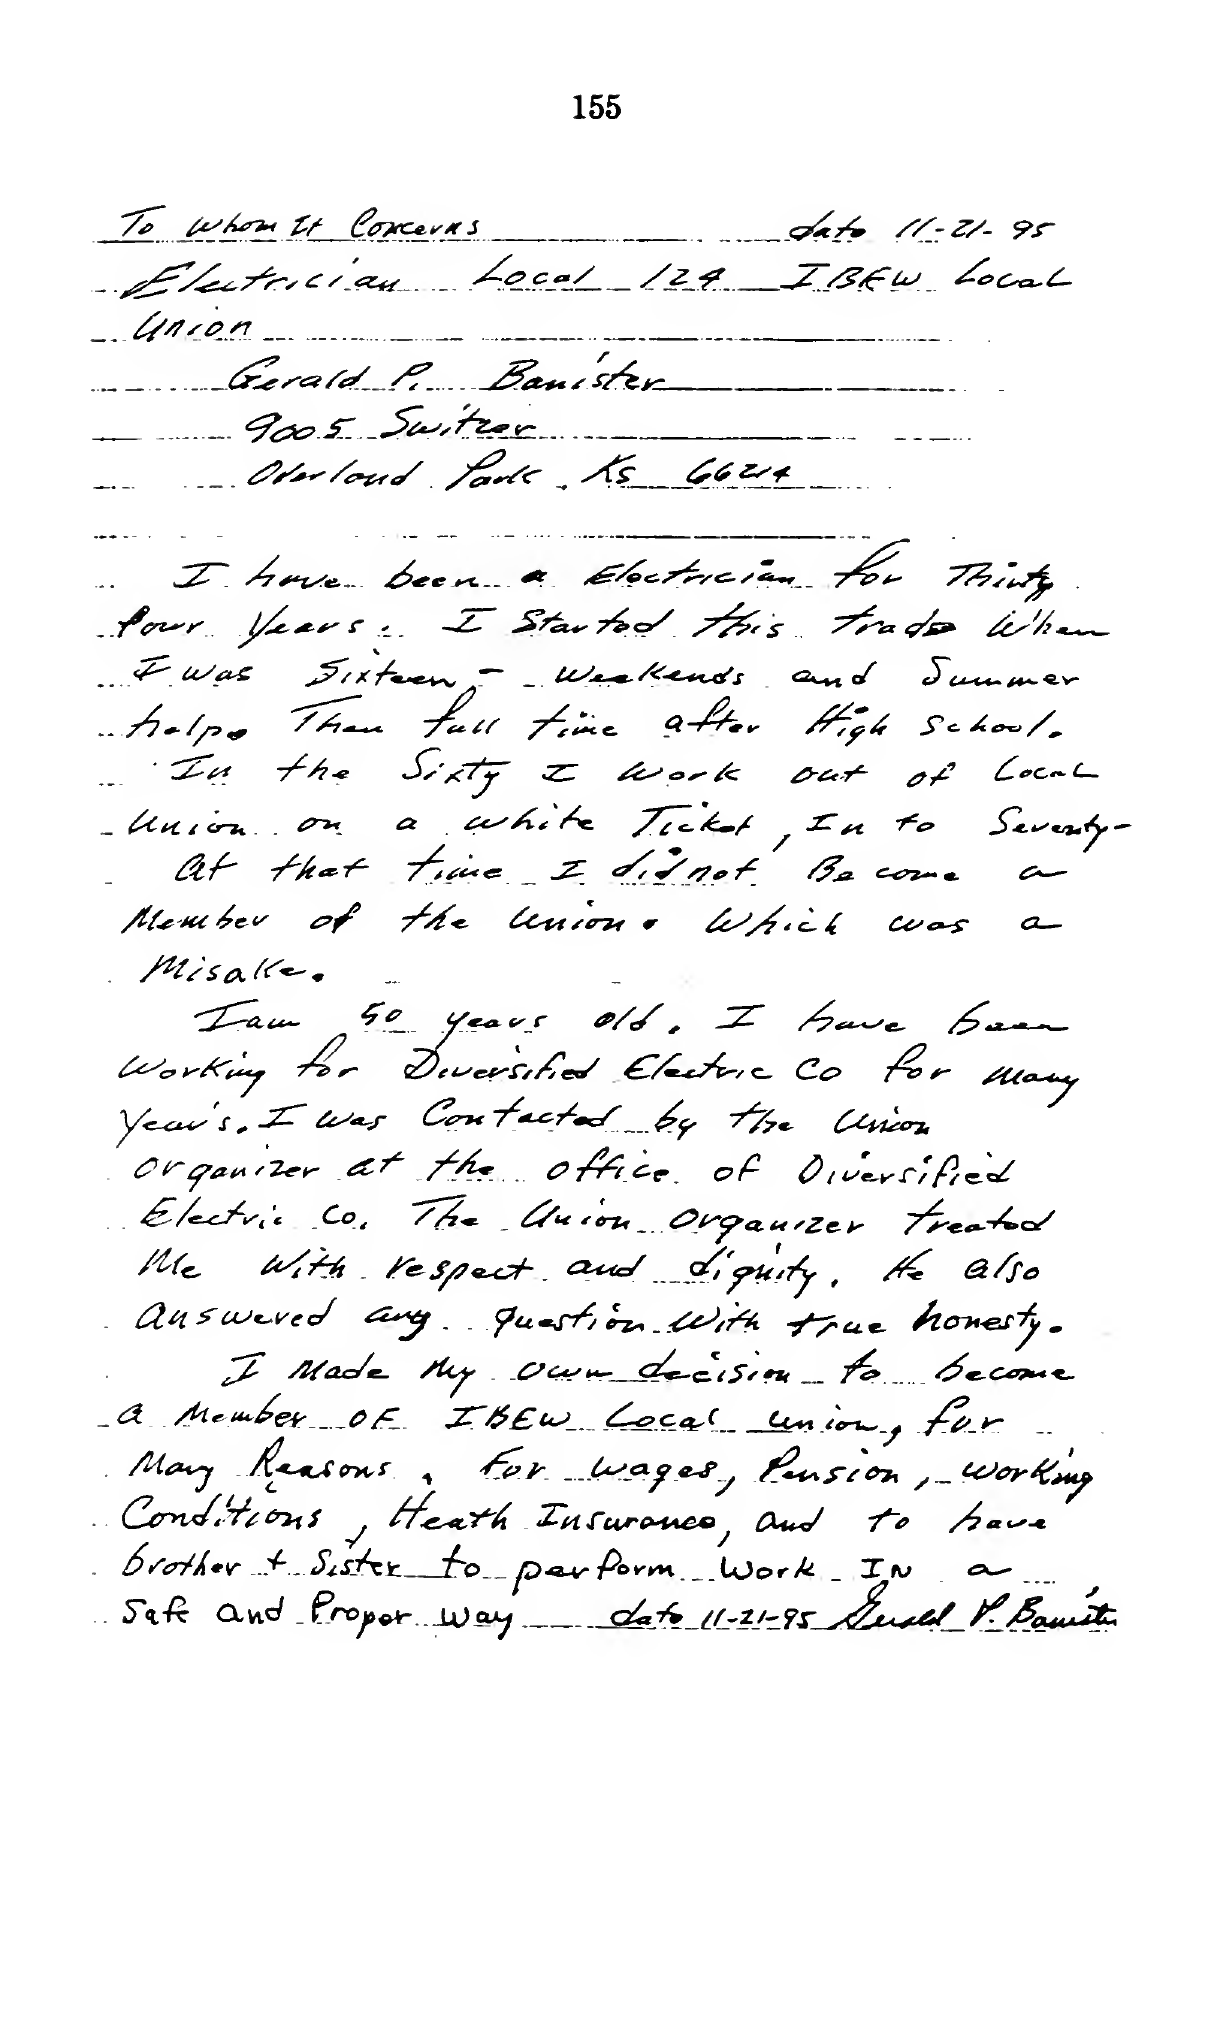 155
To Whom It Concerns date 11-21-95
Electrician Local 124 IBEW Local
Union
Gerald P. Banister
9005 Switzer
Overland Park, Ks 66214
I have been a Electrician for Thirty
four Years. I Started this trade When
I was Sixteen - Weekends and Summer
help. Then full time after High School.
In the Sixty I work out of Local
Union on a white Ticket, In to Seventy-
At that time I did not Become a
Member of the Union. Which was a
Misake.
I am 50 years old. I have been
Working for Diversified Electric Co for many
Years. I was Contacted by the Union
Organizer at the office of Diversified
Electric Co. The Union Organizer treated
Me With respect and dignity. He also
Answered any question With true honesty.
I Made My own decision to become
a Member OF IBEW Local union, for
Many Reasons. For wages, Pension, working
Conditions, Heath Insurance, and to have
brother + Sister to perform Work IN a
Safe and Proper Way date 11-21-95 Gerald P. Banister